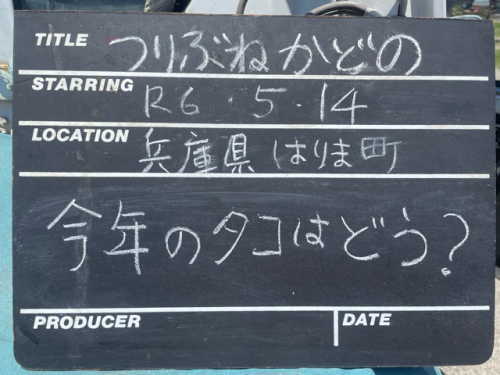 TITLE つりぶねかどの
STARRING R6.5.14
LOCATION 兵庫県はりま町
今年のタコはどう?
PRODUCER DATE